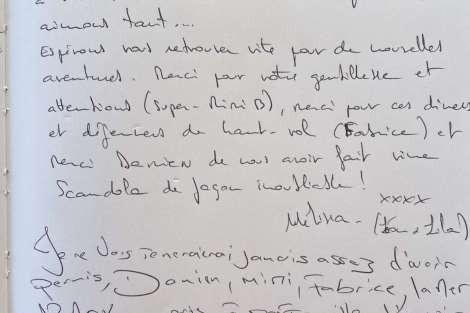 aimons tant...
Espérons vous retrouver vite pour de nouvelles
aventures. Merci pour votre gentillesse et
attentions (Super-Mimi B), merci pour ces diners
et déjeuners de haut-vol (Fabrice) et
merci Damien de nous avoir fait vivre
Scandola de façon inoubliable !
xxxx
Mélissa - ( & Lila)
Je ne vous remercierai jamais assez d'avoir
permis, Damien, Mimi, Fabrice, la Mer